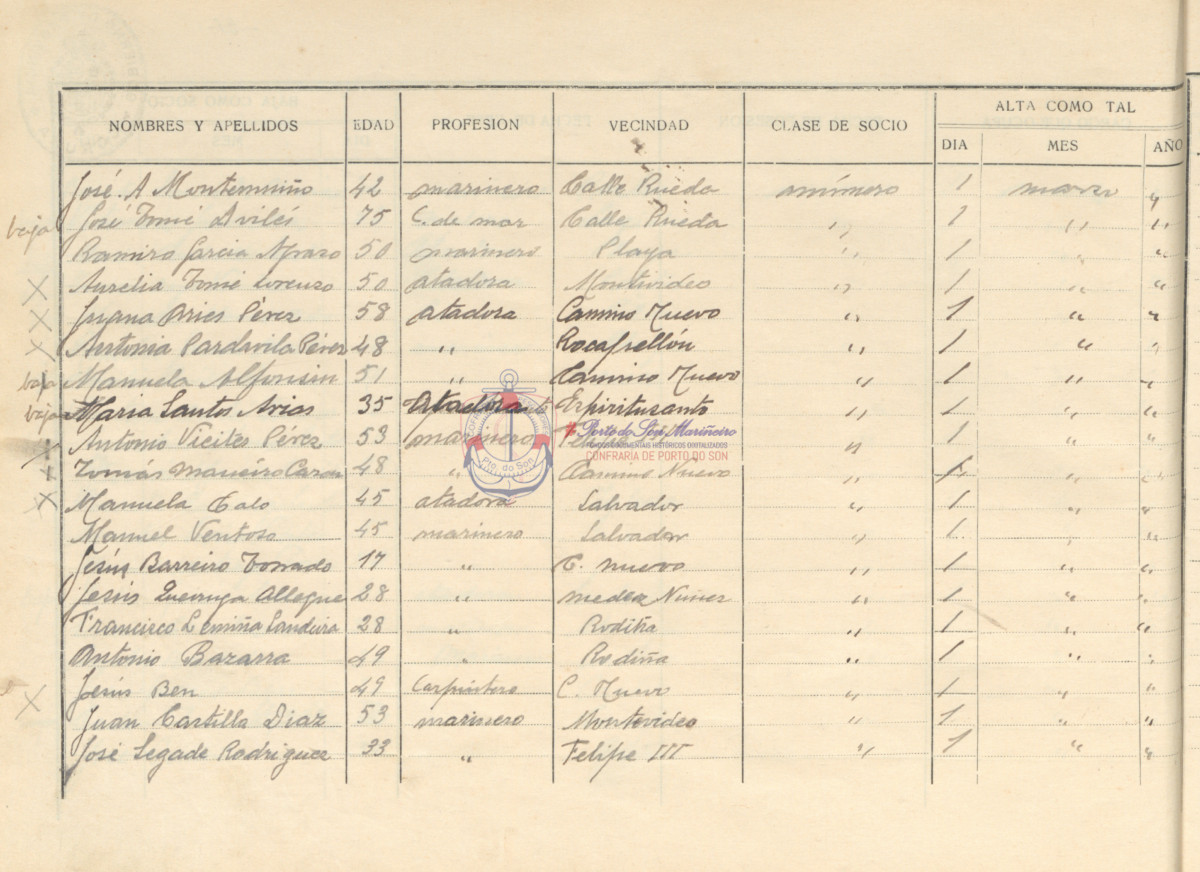 ALTA COMO TAL
NOMBRES Y APELLIDOS EDAD PROFESION VECINDAD CLASE DE SOCIO DIA MES AÑO
José A Montemuiño 42 marinero Calle Rueda número 1 marzo "
baja José Tomé Avilés 75 C. de mar Calle Rueda " 1 " "
Ramiro Garcia 50 marinero Playa " 1 " "
X Aurelia Tomé Lorenzo 50 atadora Montevideo " 1 " "
X Juana Aries Pérez 58 atadora Camino Nuevo " 1 " "
X Antonia Pardavila Pérez 48 " " 1 " "
baja Manuela Alfonsin 51 " Camino Nuevo " 1 " "
baja Maria Santos Arias 35 Atadora Espiritusanto " 1 " "
Antonio Vicites Pérez 53 marinero " 1 " "
Tomás Maneiro 48 " Camino Nuevo " 1 " "
X Manuela Calo 45 atadora Salvador " 1 " "
Manuel Ventoso 45 marinero Salvador " 1 " "
Jesús Barreiro Torrado 17 " C. nuevo " 1 " "
Jesús Queiruga Allegue 28 " Mendez Nuñez " 1 " "
Francisco Lemiña Landeira 28 " Rodiña " 1 " "
Antonio Bazarra 49 " Rodiña " 1 " "
X Jesús Ben 49 Carpintero C. Nuevo " 1 " "
Juan Castilla Diaz 53 marinero Montevideo " 1 " "
José Segade Rodriguez 33 " Felipe III " 1 " "
Porto do Son Mariñeiro
FONDOS DOCUMENTAIS HISTÓRICOS DIXITALIZADOS
CONFRARIA DE PORTO DO SON
Pto. do Son